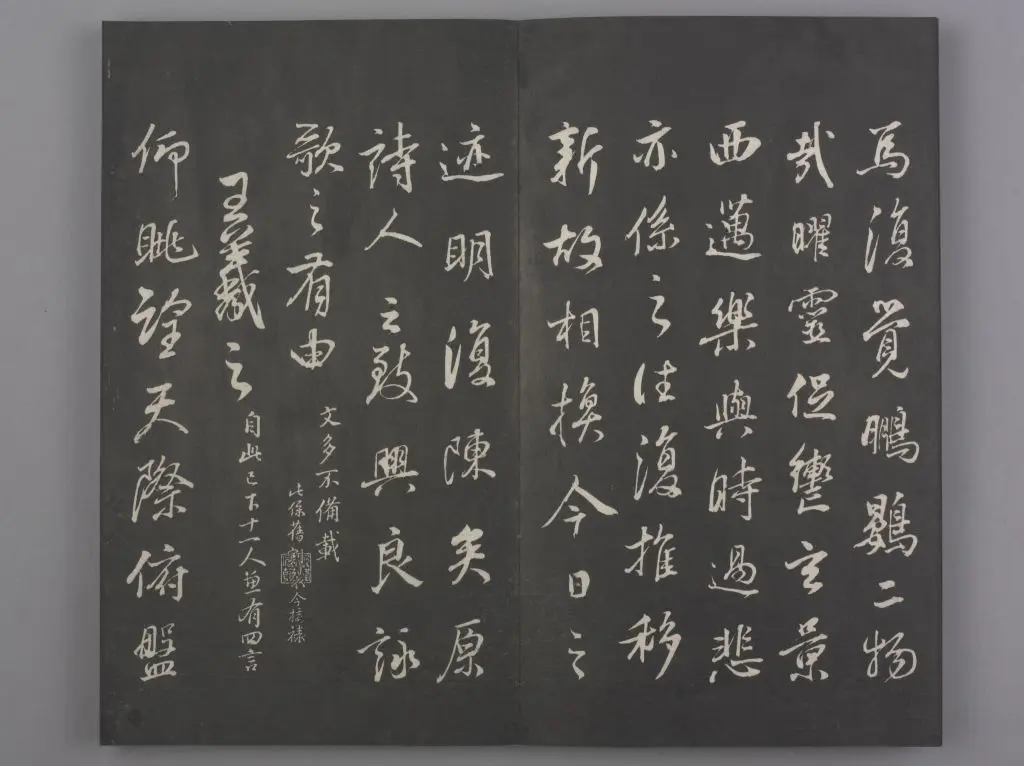 焉復覺鵬鷃二物
哉曜靈促轡玄景
西邁樂與時過悲
亦係之往復推移
新故相換今日之
迹明復陳矣原
詩人之致興良詠
歌之有由
文多不備載
此係舊
王羲之 自此已下十一人並有四言
仰眺望天際俯盤